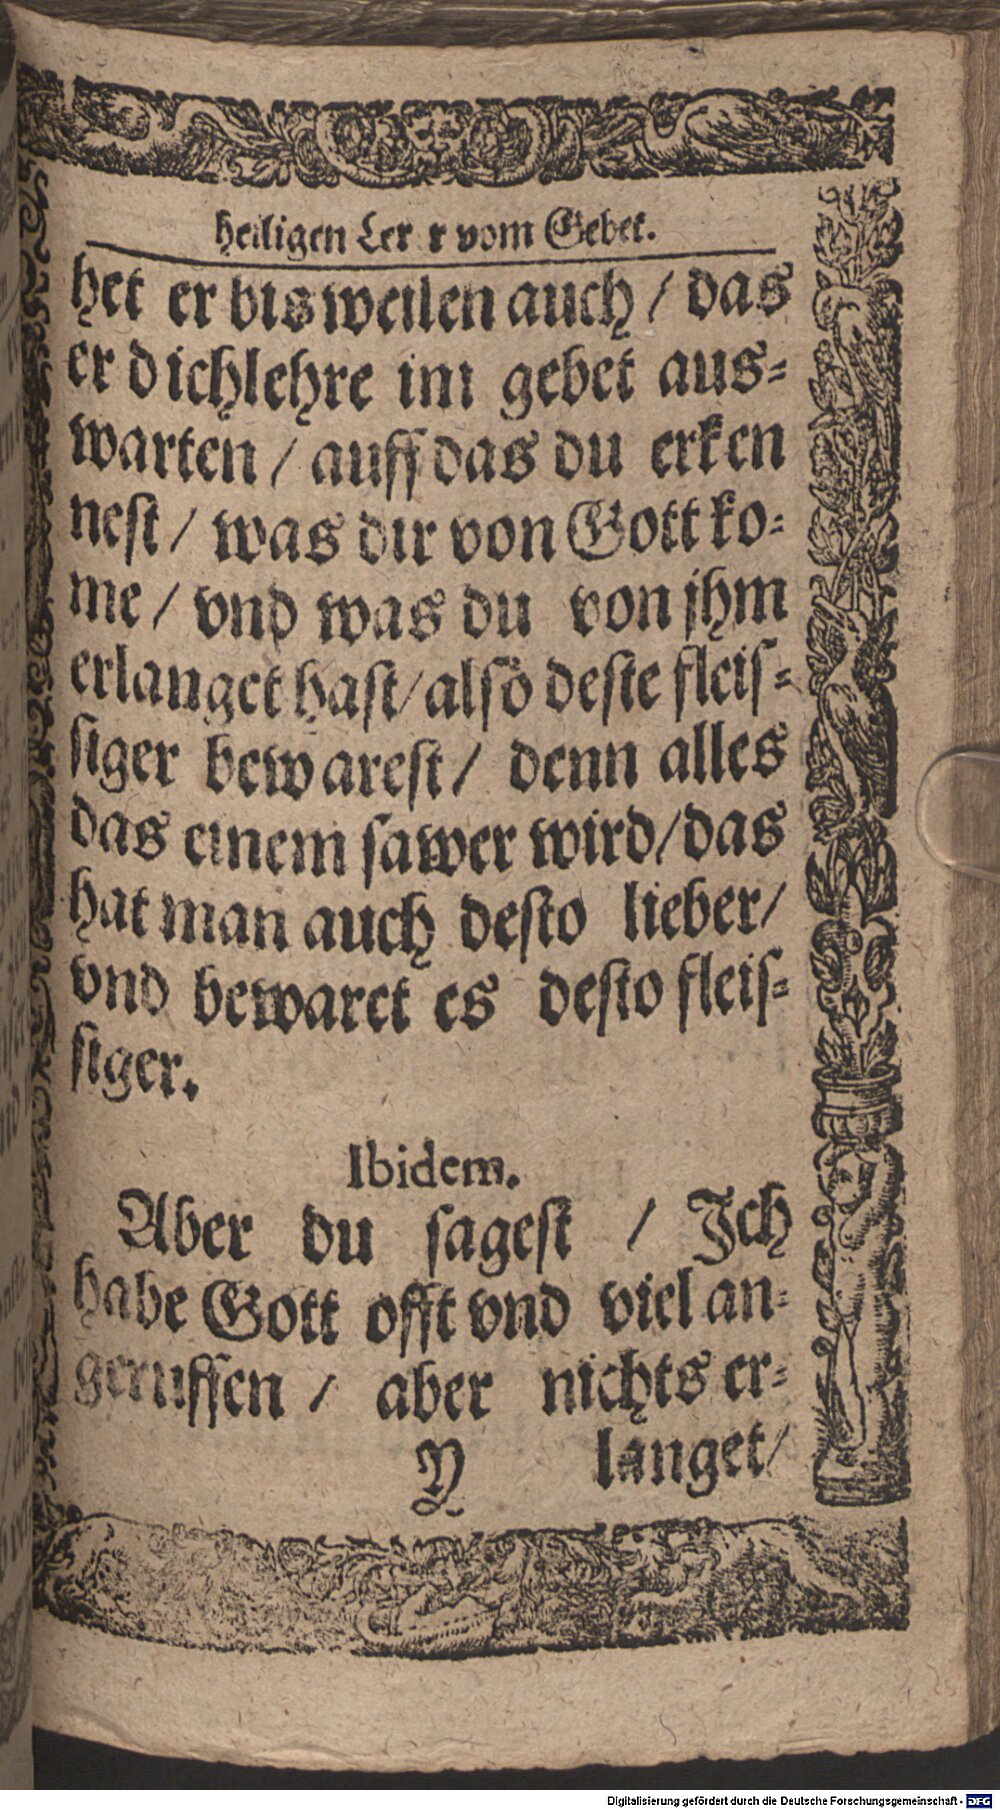 heiligen Lerer vom Gebet.
het er bisweilen auch / das
er dich lehre im gebet aus-
warten / auff das du erken
nest / was dir von Gott ko-
me / vnd was du von jhm
erlanget hast / also deste fleis-
siger bewarest / denn alles
das einem sawer wird / das
hat man auch desto lieber /
vnd bewaret es desto fleis-
siger.
Ibidem.
Aber du sagest / Jch
habe Gott offt vnd viel an-
geruffen / aber nichts er-
Y langet /
Digitalisierung gefördert durch die Deutsche Forschungsgemeinschaft - DFG